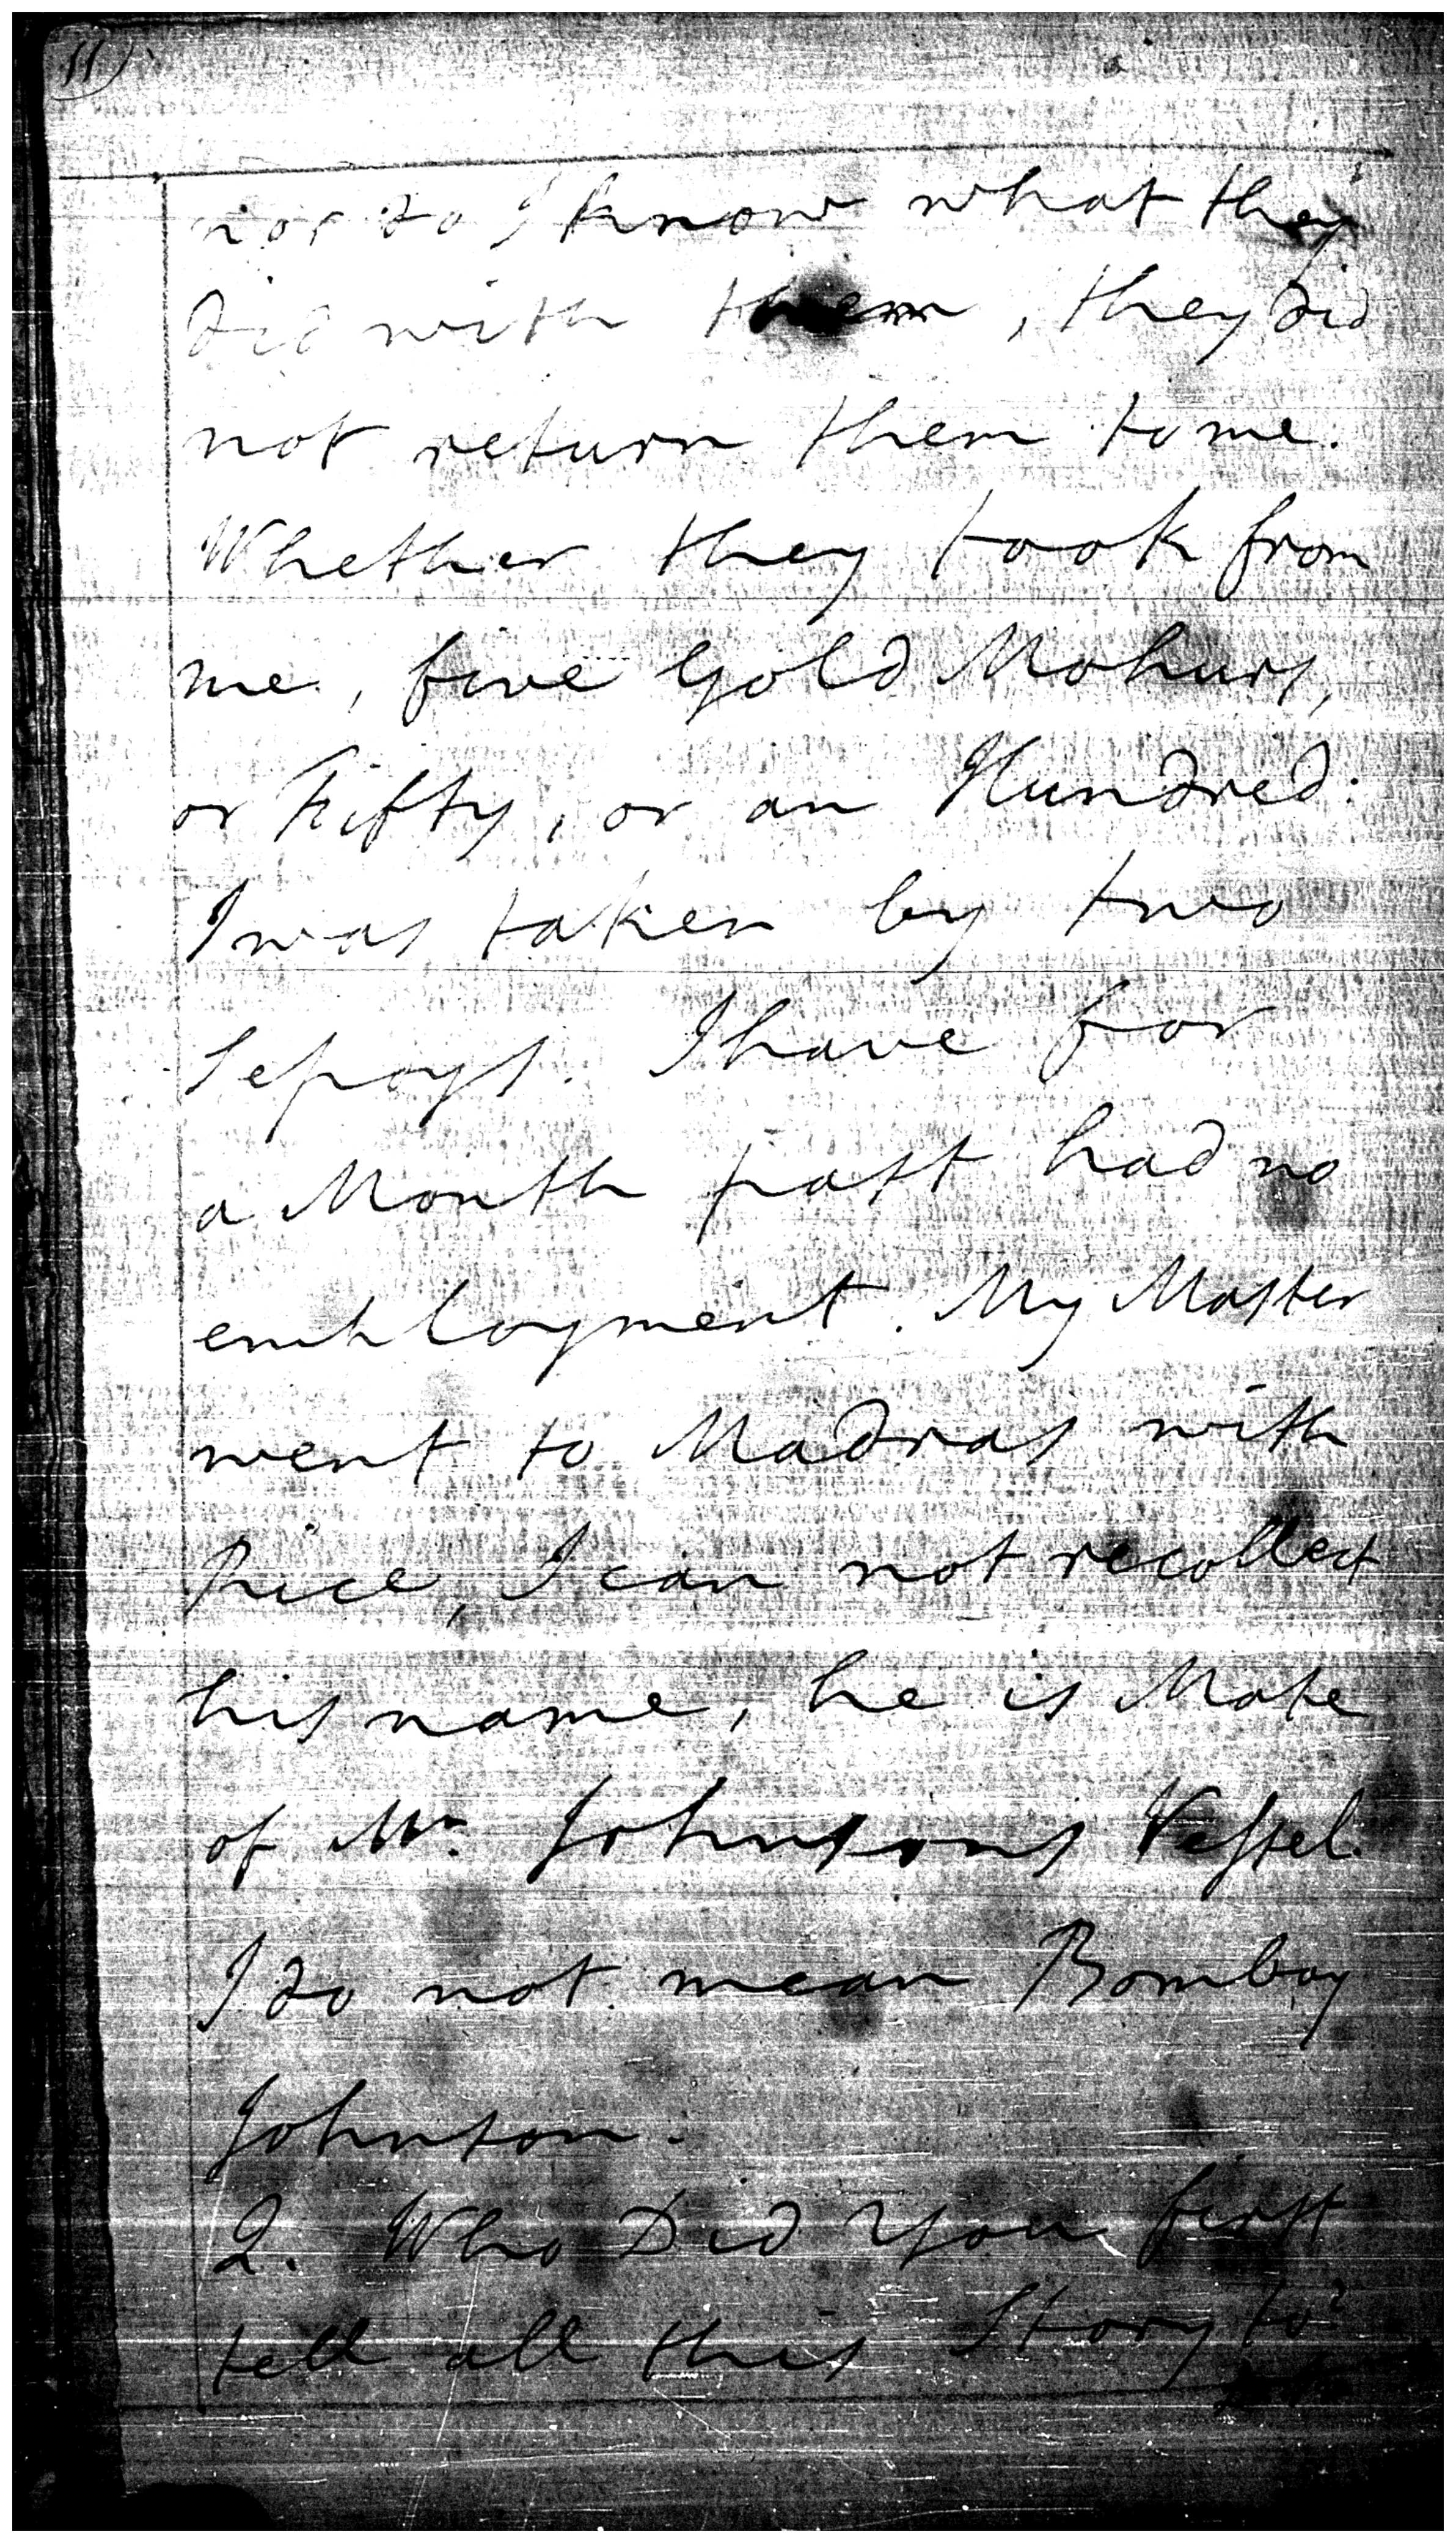 11)
nor do I know what they
did with them, they did
not return them to me.
Whether they took from
me, five Gold Mohurs,
or Fifty, or an Hundred.
I was taken by two
Sepoys. I have for
a Month past had no
employment. My Master
went to Madras with
Rice, I can not recollect
his name, he is Mate
of Mr. Johnsons Vessel.
I do not mean Bombay
Johnson.
Q. Who Did You first
tell all this Story to?